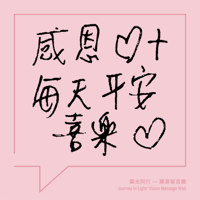 感恩♡十
每天平安
喜樂♡
光同行 — 願景留言牆
Journey In Light: Vision Message Wall